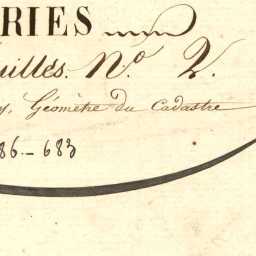 RIES
uilles. N.º 2.
Géomètre du Cadastre
86.-683